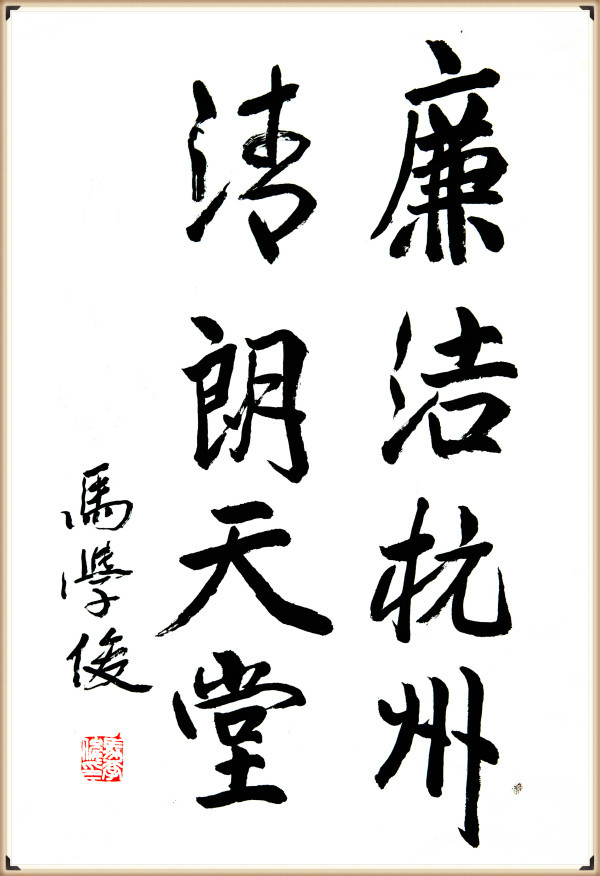 廉洁杭州
清朗天堂
馬學俊